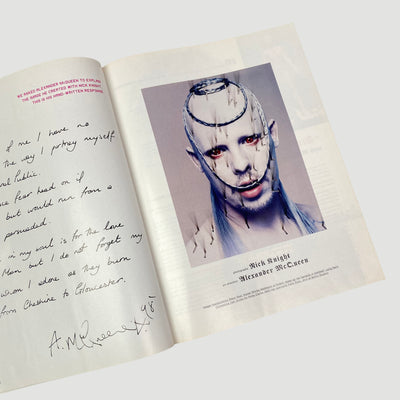 WE ASKED ALEXANDER McQUEEN TO EXPLAIN
THE IMAGE HE CREATED WITH NICK KNIGHT.
THIS IS HIS HAND-WRITTEN RESPONSE
of me I have no
the way I portray myself
Public.
fear head on if
but would run from a
persuaded.
in my soul is for the love
Man but I do not forget my
whom I adore as they burn
from Cheshire to Gloucester.
A. McQueen 98'
photography Nick Knight
Alexander McQueen